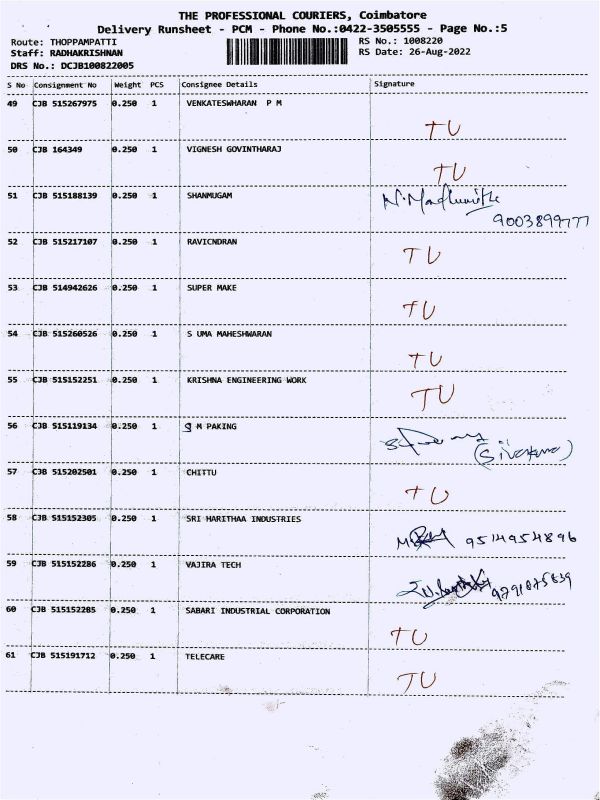 THE PROFESSIONAL COURIERS, Coimbatore
Delivery Runsheet - PCM - Phone No.:0422-3505555 - Page No.:5
Route: THOPPAMPATTI RS No.: 1008220
Staff: RADHAKRISHNAN RS Date: 26-Aug-2022
DRS No.: DCJB100822005
S No Consignment No Weight PCS Consignee Details Signature
49 CJB 515267975 0.250 1 VENKATESWHARAN P M
TU
50 CJB 164349 0.250 1 VIGNESH GOVINTHARAJ
TU
51 CJB 515188139 0.250 1 SHANMUGAM
9003899777
52 CJB 515217107 0.250 1 RAVICNDRAN
TU
53 CJB 514942626 0.250 1 SUPER MAKE
TU
54 CJB 515260526 0.250 1 S UMA MAHESHWARAN
TU
55 CJB 515152251 0.250 1 KRISHNA ENGINEERING WORK
TU
56 CJB 515119134 0.250 1 g M PAKING
57 CJB 515202501 0.250 1 CHITTU
TU
58 CJB 515152305 0.250 1 SRI HARITHAA INDUSTRIES
9514954896
59 CJB 515152286 0.250 1 VAJIRA TECH
60 CJB 515152285 0.250 1 SABARI INDUSTRIAL CORPORATION
TU
61 CJB 515191712 0.250 1 TELECARE
TU